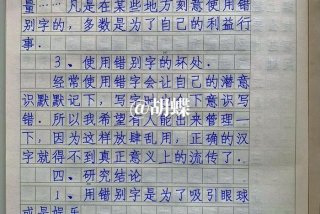 量……凡是在某些地方刻意使用错
别字的，多数是为了自己的利益行
事．
3、使用错别字的坏处．
经常使用错字会让自己的潜意
识默默记下，写字时会下意识写
错．所以我希望有人能出来管理一
下，因为这样放肆乱用，正确的汉
字就得不到真正意义上的流传了．
@胡蝶
四、研究结论
1、用错别字是为了吸引眼球
或是娱乐